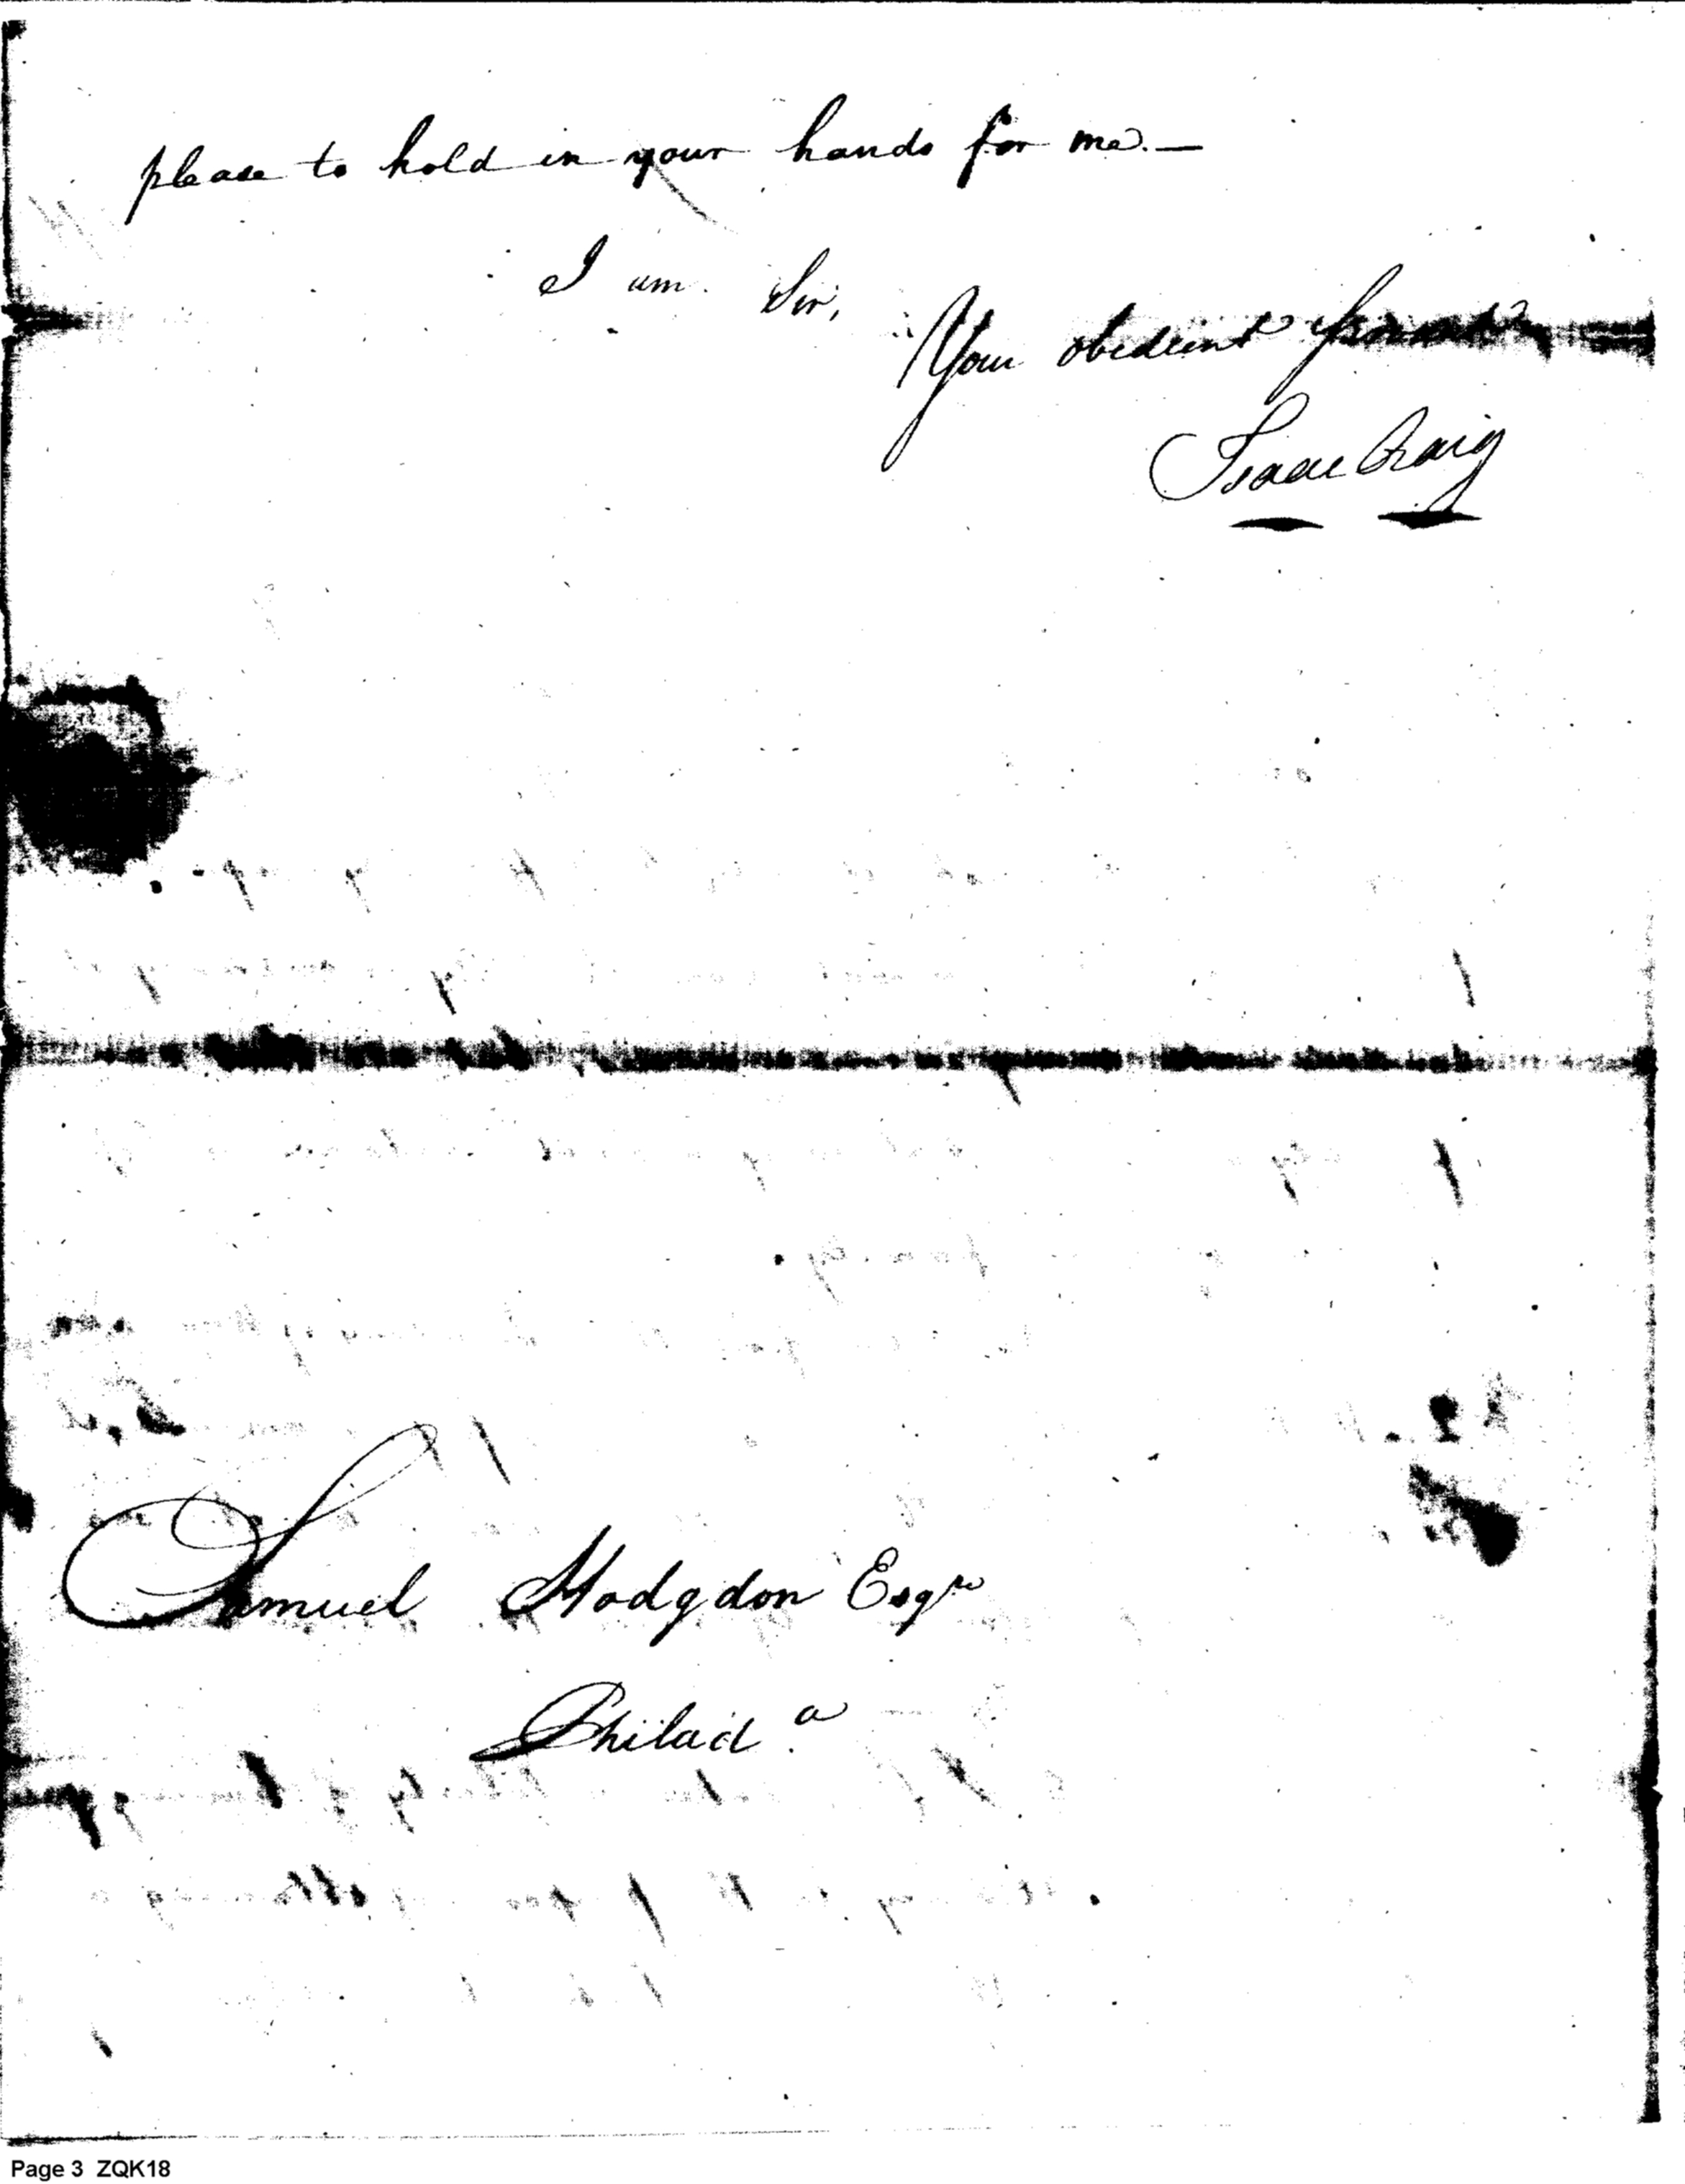 please to hold in your hands for me.—
I am Sir,
Your obedient Servant
Isaac Craig
Samuel Hodgdon Esqre
Philada
Page 3 ZQK18